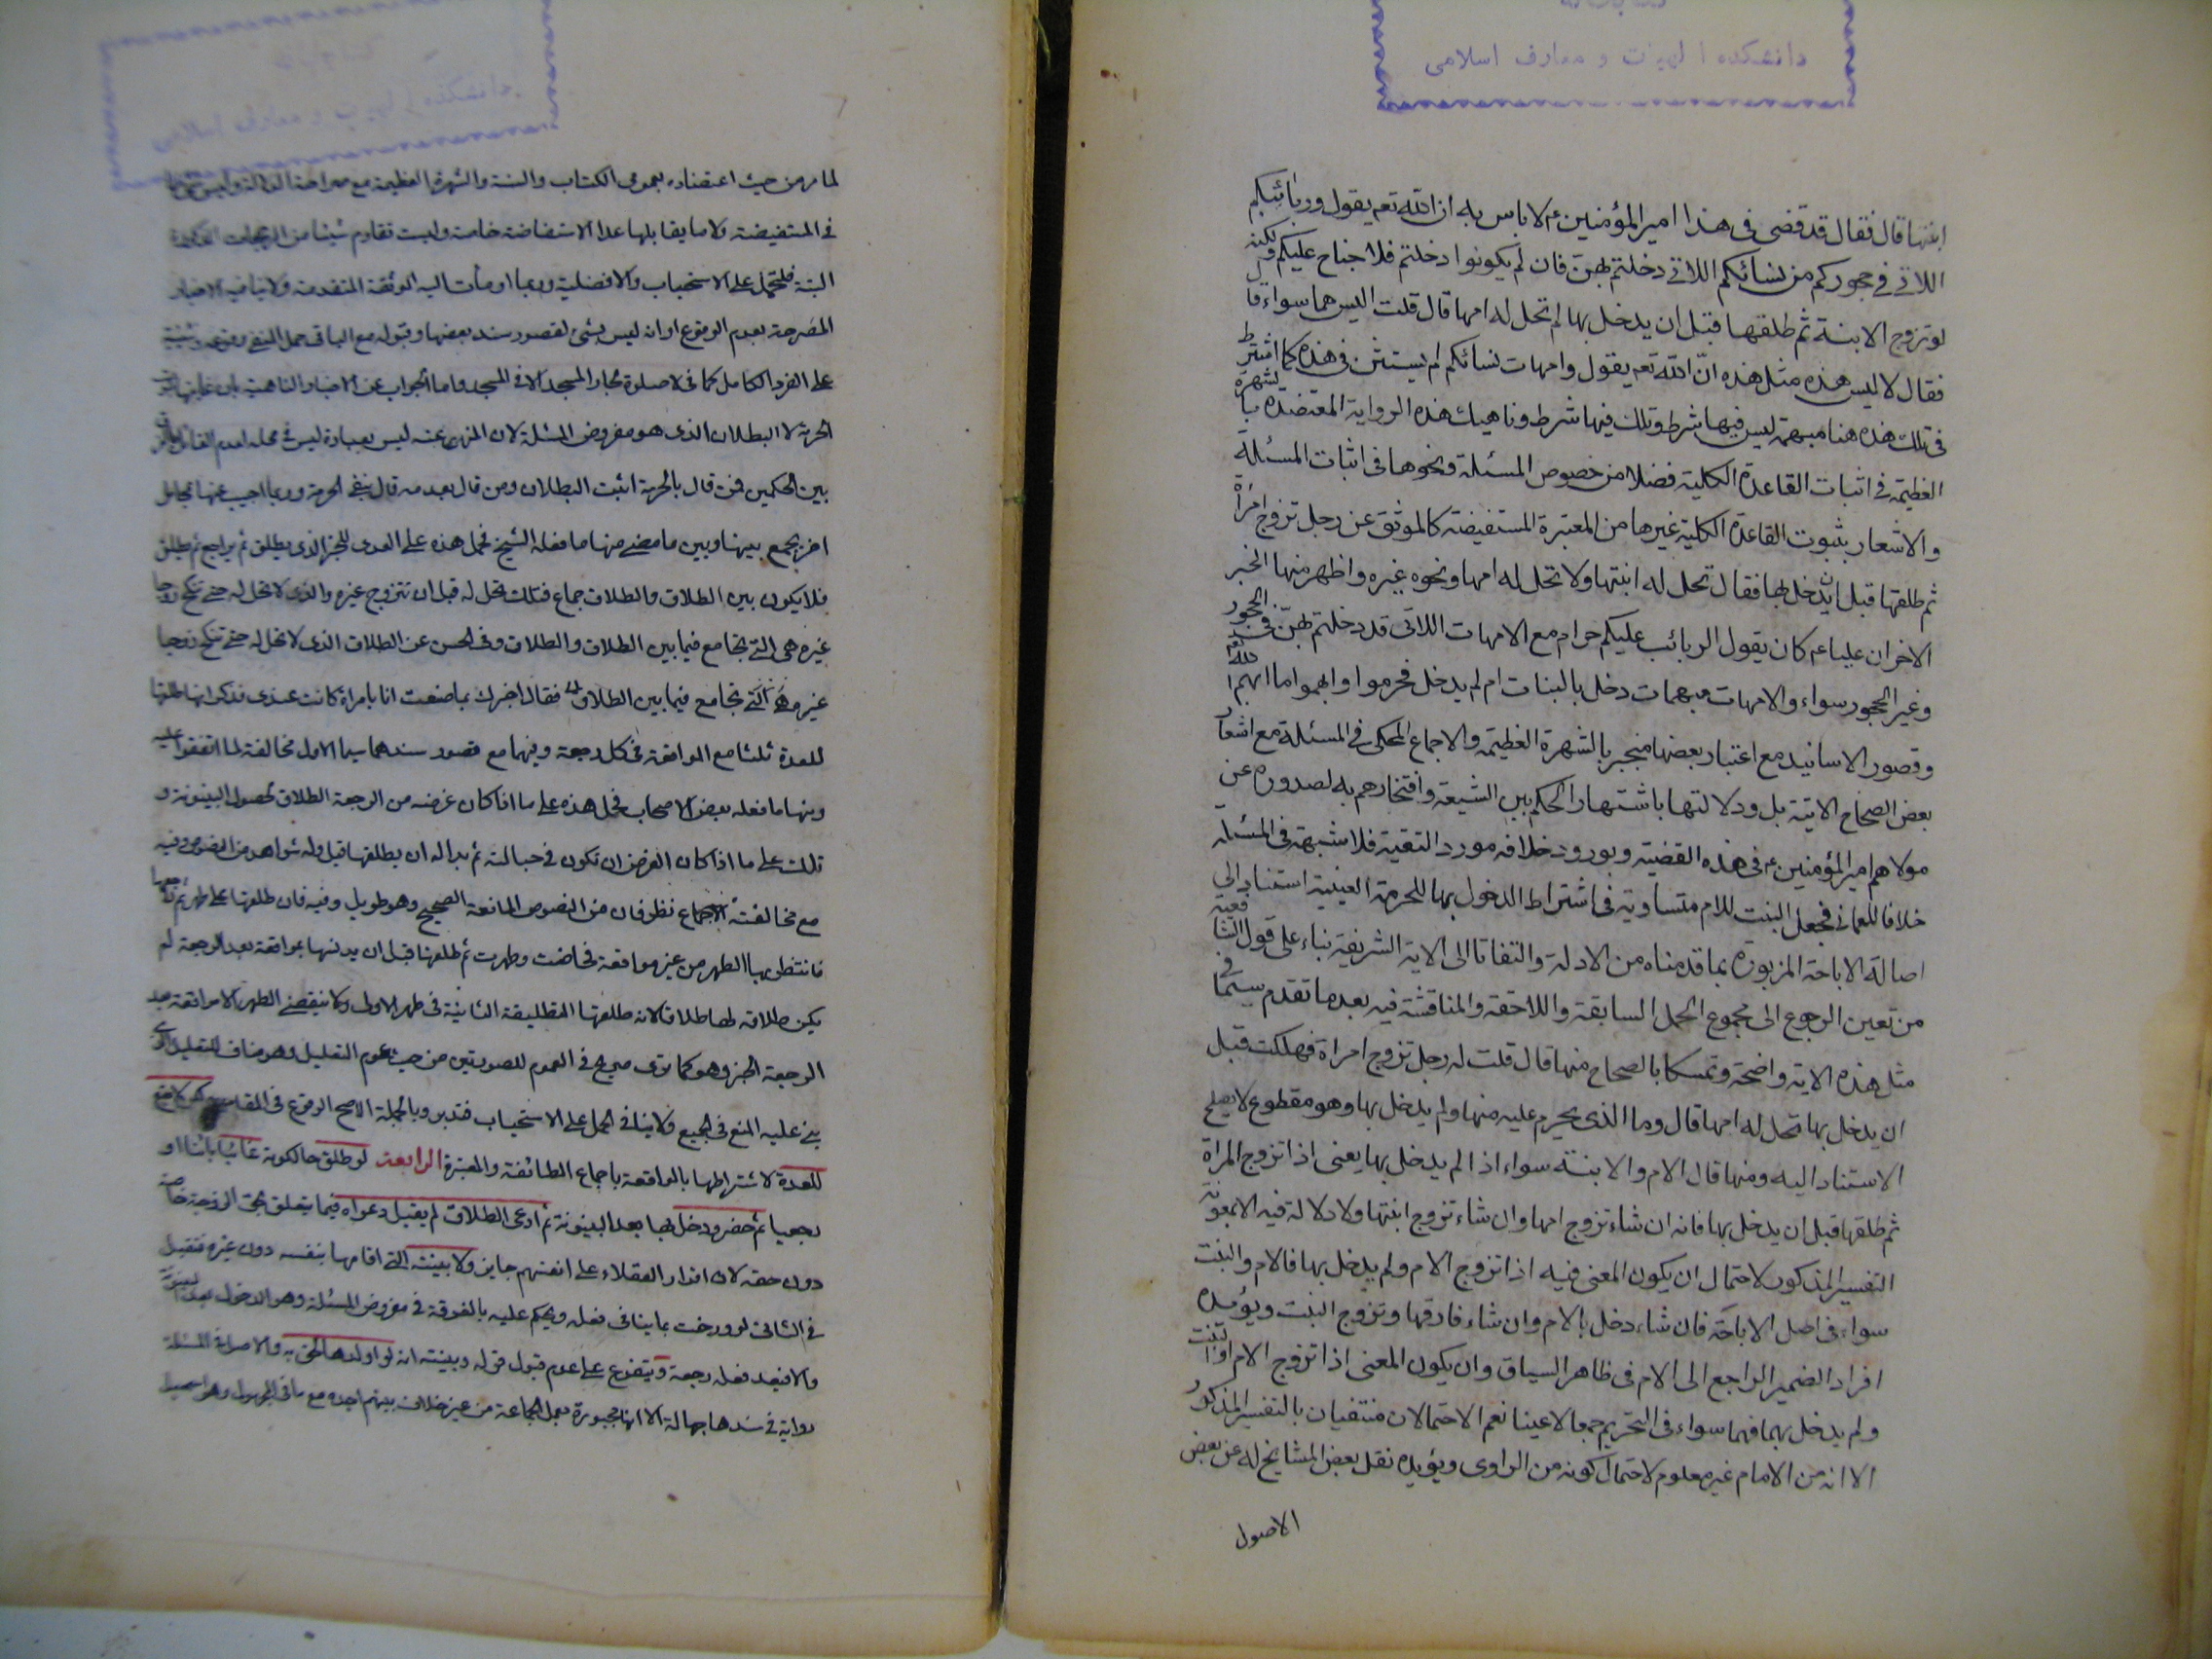 دانشكده الهيات و معارف اسلامى
ابنتها قال فقال قد قضى فى هذا امير المؤمنين ع لا باس به ان الله تعم يقول وربائبكم
اللاتى فى حجوركم من نسائكم اللاتى دخلتم بهن فان لم يكونوا دخلتم فلا جناح عليكم ولكنه
لو تزوج الابنة ثم طلقها قبل ان يدخل بها لم تحل له امها قال قلت اليس هما سواء قا
فقال لا ليس هذه مثل هذه ان الله تعم يقول وامهات نسائكم لم يستثن فى هذه كما اشترط
فى تلك هذه هنا مبهمة ليس فيها شرط وتلك فيها شرط وناهيك هذه الرواية المعتضدة بالشهرة
العظيمة فى اثبات القاعدة الكلية فضلا من خصوص المسئلة ونحوها فى اثبات المسئلة
والاشعار بثبوت القاعدة الكلية غيرها من المعتبرة المستفيضة كالموثق عن رجل تزوج امرأة
ثم طلقها قبل ان يدخل بها فقال تحل له ابنتها ولا تحل له امها ونحوه غيره واظهر منها الخبر
الاخر ان عليا ع كان يقول الربائب عليكم حرام مع الامهات اللاتى قد دخلتم بهن فى الحجور
وغير الحجور سواء والامهات مبهمات دخل بالبنات ام لم يدخل فحرموا وابهموا ما ابهم الله
وقصور الاسانيد مع اعتبار بعضها منجبر بالشهرة العظيمة والاجماع المحكى فى المسئلة مع اشعار
بعض الصحاح الاتية بل ودلالتها باشتهار الحكم بين الشيعة وافتخارهم به لصدوره عن
مولاهم امير المؤمنين ع فى هذه القضية وبورود خلافه مورد التقية فلا شبهة فى المسئلة
خلافا للعمانى فجعل البنت للام متساوية فى اشتراط الدخول بها للحرمة العينية استنادا الى
اصالة الاباحة المزبورة بما قدمناه من الادلة والتفاتا الى الاية الشريفة بناء على قول الشافعية
من تعين الرجوع الى مجموع الجمل السابقة واللاحقة والمناقشة فيه بعد ما تقدم سيما فى
مثل هذه الاية واضحة وتمسكا بالصحاح منها قال قلت له رجل تزوج امراة فهلكت قبل
ان يدخل بها تحل له امها قال وما الذى يحرم عليه منها ولم يدخل بها وهو مقطوع لا يصلح
الاستناد اليه ومنها قال الام والابنة سواء اذا لم يدخل بها يعنى اذا تزوج المراة
ثم طلقها قبل ان يدخل بها فانه ان شاء تزوج امها وان شاء تزوج ابنتها ولا دلالة فيه الا بمعونة
التفسير المذكور لاحتمال ان يكون المعنى فيه اذا تزوج الام ولم يدخل بها فالام والبنت
سواء فى اصل الاباحة فان شاء دخل بالام وان شاء فارقها وتزوج البنت ويؤيده
افراد الضمير الراجع الى الام فى ظاهر السياق وان يكون المعنى اذا تزوج الام او البنت
ولم يدخل بهما فهما سواء فى التحريم جمعا لا عينا نعم الاحتمالان منتفيان بالتفسير المذكور
الا انه من الامام غير معلوم لاحتمال كونه من الراوى ويؤيده نقل بعض المشايخ له عن بعض
الاصول
لما مر من حيث اعتضاده بعموم الكتاب والسنة والشهرة العظيمة مع صراحة الدلالة وليس
فى المستفيضة ولا ما يقابلها عدا الاستفاضة خاصة وليست تقاوم شيئا من المرجحات المذكورة
البتة فلتحمل على الاستحباب والافضلية وربما اومأت اليه الموثقة المتقدمة ولا ينافيه الاخبار
المصرحة بعدم الوقوع او انه ليس بشئ لقصور سند بعضها وقبوله مع الباقى حمل المنفى
على الفرد الكامل كما فى لا صلوة لجار المسجد الا فى المسجد واما الجواب عن الاخبار الناهية بان غايتها
الحرمة لا البطلان الذى هو مفروض المسئلة لان المنهى عنه ليس بعبادة ليس فى محله لعدم القائل
بين الحكمين فمن قال بالحرمة اثبت البطلان ومن قال بعدمه قال بنفى الحرمة وربما اجيب عنها بمحامل
اخر بجمع بينها وبين ما مضى منها ما فعله الشيخ فحمل هذه على العدى للخبر الذى يطلق ثم يراجع ثم يطلق
فلا يكون بين الطلاق والطلاق جماع فتلك تحل له قبل ان تتزوج غيره والذى لا تحل له حتى تنكح زوجا
غيره هى التى تجامع فيما بين الطلاق والطلاق وفى الحسن عن الطلاق الذى لا تحل له حتى تنكح زوجا
غيره التى تجامع فيما بين الطلاق فقال اخبرك بما صنعت انا بامراة كانت عندى فذكر انه طلقها
للعدة ثلثا مع المواقعة فى كل رجعة وفيهما مع قصور سندهما سيما الاول مخالفة لما اتفقوا عليه
ومنها ما فعله بعض الاصحاب فحمل هذه على ما اذا كان غرضه من الرجعة الطلاق لحصول البينونة و
تلك على ما اذا كان الغرض ان تكون فى حبالته ثم بدا له ان يطلقها قيل وله شواهد من النصوص وفيه
مع مخالفته الاجماع نظر فان من النصوص المانعة الصحيح وهو طويل وفيه فان طلقها على طهر ثم راجعها
فانتظر بها الطهر من غير مواقعة فحاضت وطهرت ثم طلقها قبل ان يدنسها بمواقعة بعد الرجعة لم
يكن طلاقه لها طلاقا لانه طلقها التطليقة الثانية فى طهر الاولى ولا ينقضى الطهر الا بمواقعة بعد
الرجعة الخبر وهو كما ترى صريح فى العموم للصورتين من حيث عموم التعليل وهو مناف للتفصيل
ينفى عليه المنع فى الجميع ولا ينافى الحمل على الاستحباب فتدبر وبالجملة الاصح الوقوع فى المقامين
للعدة لاشتراطها بالمواقعة باجماع الطائفة والمعتبرة الرابعة لو طلق حالكونه غائبا بائنا او
رجعيا ثم حضر ودخل بها بعد البينونة ثم ادعى الطلاق لم يقبل دعواه فيما يتعلق بحق الزوجة خاصة
دون حقه لان اقرار العقلاء على انفسهم جايز ولا بينته التى اقامها بنفسه دون غيره فتقبل
فى الثانى لو ورخت بما ينافى فعله ويحكم عليه بالفرقة فى مفروض المسئلة وهو الدخول بعد البينونة
والا فيعد فعله رجعة ويتفرع على عدم قبول قوله وبينته انه لو اولدها لحق به والاصل فى المسئلة
رواية فى سندها جهالة الا انها مجبورة بعمل الجماعة من غير خلاف بينهم اجده